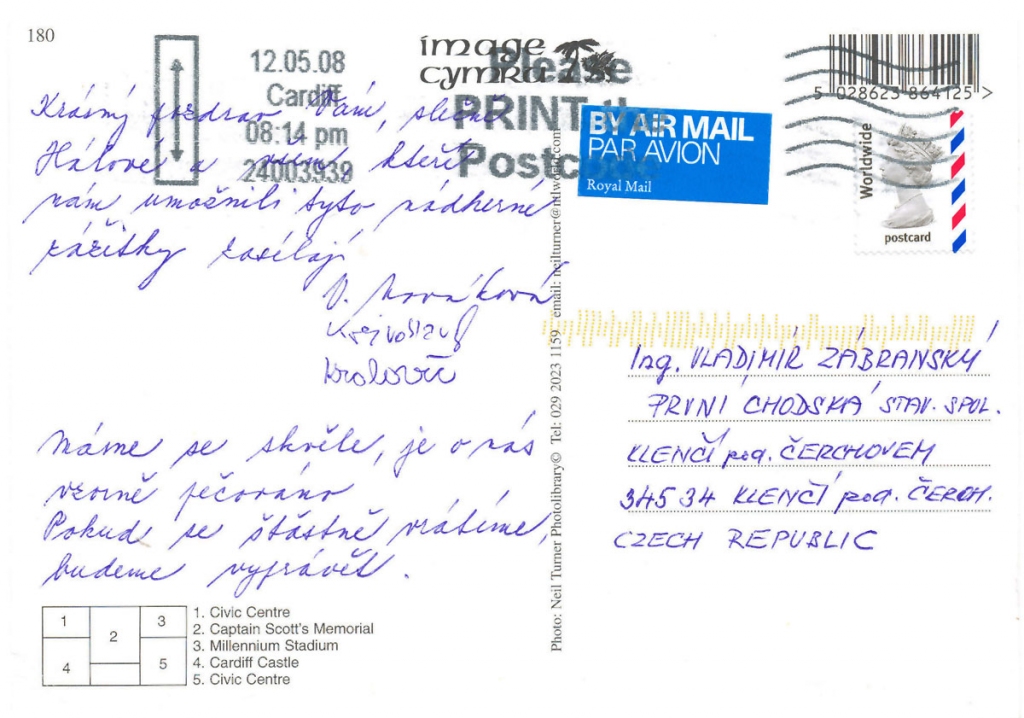 180
12.05.08
Cardiff
08:14 pm
24003939
image
cymru
Please
PRINT the
Postcode
BY AIR MAIL
PAR AVION
Royal Mail
5 028623 864125 >
Worldwide
postcard
Krásný pozdrav Vám, slečně
Hálové a všem, kteří
nám umožnili tyto nádherné
zážitky zasílají
Nováková
Máme se skvěle, je o nás
vzorně pečováno
Pokud se šťastně vrátíme,
budeme vyprávět.
Ing. VLADIMÍR ZÁBRANSKÝ
PRVNÍ CHODSKÁ STAV. SPOL.
KLENČÍ pod. ČERCHOVEM
345 34 KLENČÍ pod. ČERCH.
CZECH REPUBLIC
Photo: Neil Turner Photolibrary© Tel: 029 2023 1159 email: neilturner@ntlworld.com
1 2 3 4 5
1. Civic Centre
2. Captain Scott's Memorial
3. Millennium Stadium
4. Cardiff Castle
5. Civic Centre